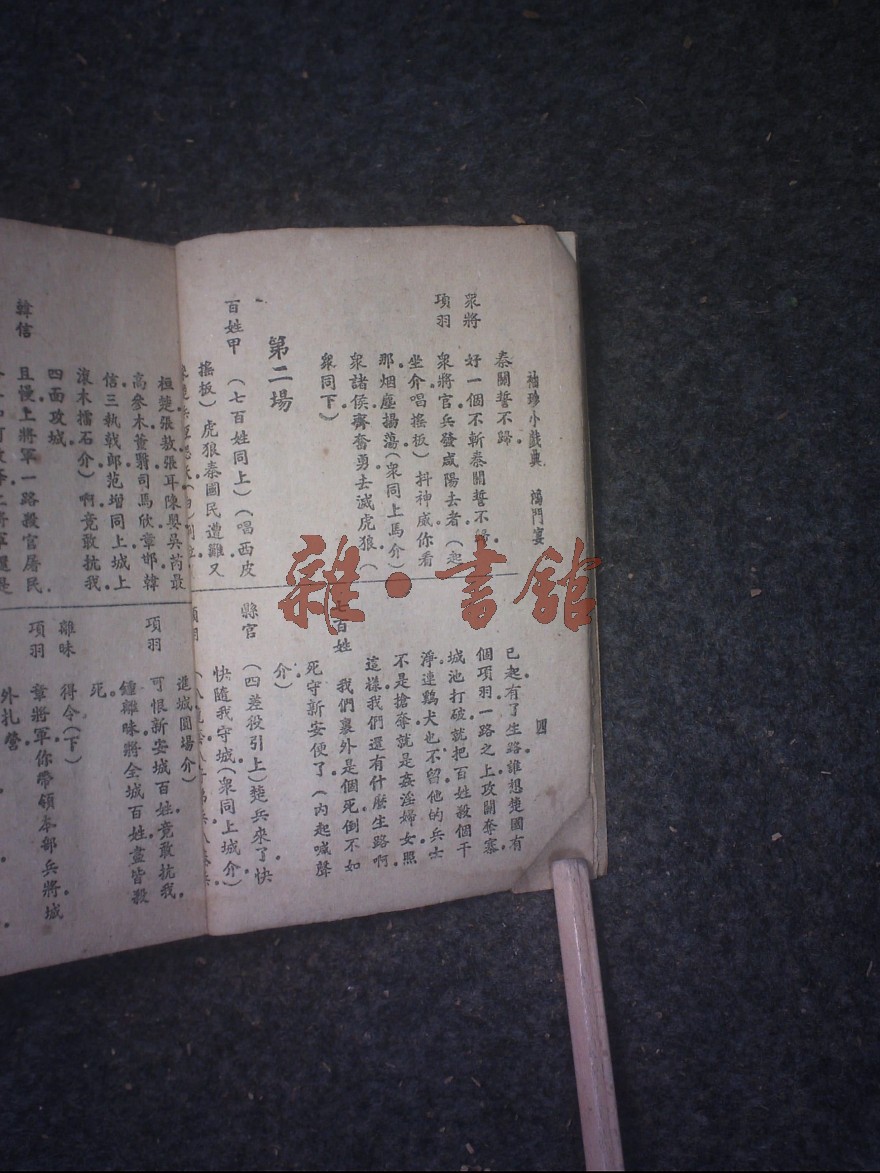 袖珍小戲典 鴻門宴
四
秦關誓不歸
衆將 好一個不斬秦關誓不歸
項羽 衆將官兵發咸陽去者（起
坐介唱搖板）抖神威你看
那烟塵揚蕩（衆同上馬介）
衆諸侯齊奮勇去滅虎狼（
衆同下）
第二場
百姓甲 （七百姓同上）（唱西皮
搖板）虎狼秦國民遭難又
已起有了生路誰想楚國有
個項羽一路之上攻關奪寨
城池打破就把百姓殺個干
淨連鷄犬也不留他的兵士
不是搶奪就是姦淫婦女照
這樣我們還有什麼生路啊
七百姓 我們裏外是個死倒不如
死守新安便了（內起喊聲
介）
縣官 （四差役引上）楚兵來了快
快隨我守城（衆同上城介）
項羽
桓楚張敖張耳陳嬰吳芮最
高參木董翳司馬欣章邯韓
信三執戟郎范增同上城上
滾木擂石介）啊竟敢抗我
四面攻城
韓信 且慢上將軍一路殺官屠民
進城圓場介）
項羽 可恨新安城百姓竟敢抗我
鍾離昧將全城百姓盡皆殺
死
離昧 得令（下）
項羽 章將軍你帶領本部兵將城
外扎營
雜·書館